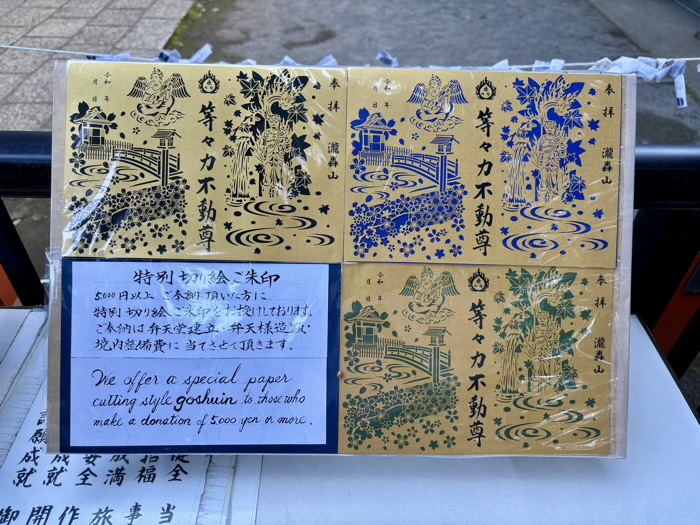 奉拝
瀧轟山
等々力不動尊
令和 年
月 日
奉拝
瀧轟山
等々力不動尊
令和 年
月 日
特別切り絵ご朱印
5,000円以上 ご奉納頂いた方に
特別切り絵ご朱印をお授けしております。
ご奉納は弁天堂建立、弁天様造立、
境内整備費に当てさせて頂きます。
We offer a special paper
cutting style goshuin to those who
make a donation of 5,000 yen or more.
奉拝
瀧轟山
等々力不動尊
令和 年
月 日
全
招福
満
安全
成就
願成就
当
事
旅
作
開
御